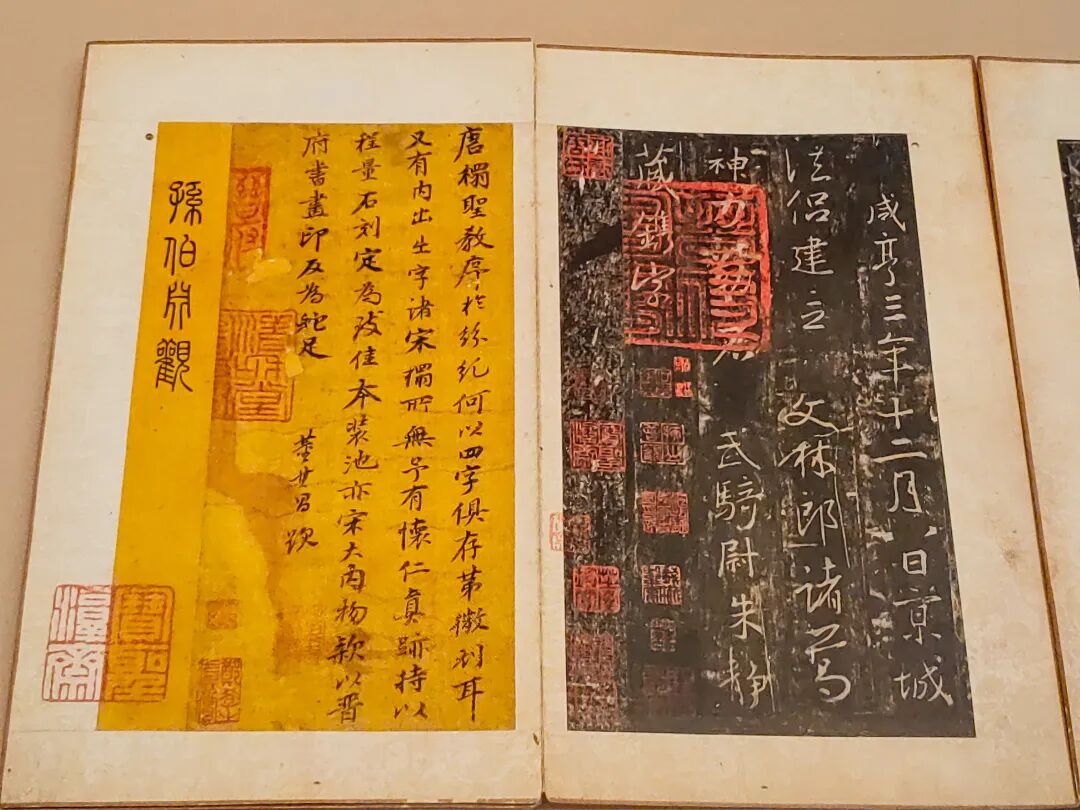 咸亨三年十二月八日京城
法侶建立 文林郎諸葛
神力勒石 武騎尉朱靜
藏鐫字
唐搨聖教序於紛糺何以四字俱存第微刓耳
又有內出生字諸宋搨所無予有懷仁真跡持以
程量石刻定為佳本裝池亦宋大內物款以晉
府書畫印反為蛇足
董其昌跋
孫伯淵觀